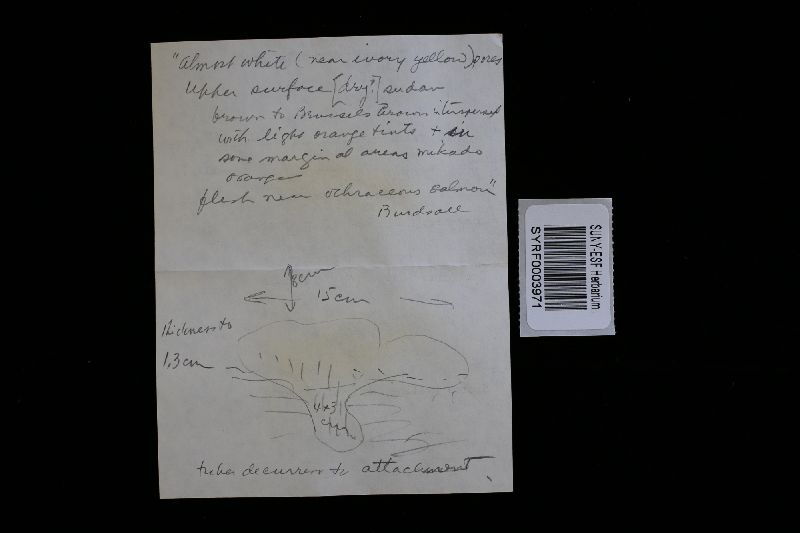 "Almost white (near ivory yellow) pores
Upper surface [dry?] sudan
brown to Brussels Brown interspersed
with light orange tints + in
some marginal areas mikado
orange
flesh near ochraceous salmon"
Burdsall
8cm
15cm
thickness to
1.3cm
4x3
cm
tubes decurrent to attachment
SUNY-ESF Herbarium
SYRF0003971